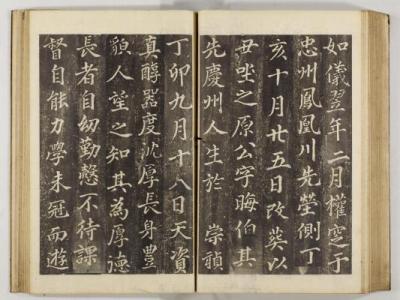 如儀翌年二月權窆于
忠州鳳凰川先塋側丁
亥十月廿五日改葬以
丑坐之原公字晦伯其
先慶州人生於 崇禎
丁卯九月十八日天資
真醇器度沈厚長身豊
貌人望之知其為厚德
長者自幼勤慤不待課
督自能力學未冠而遊